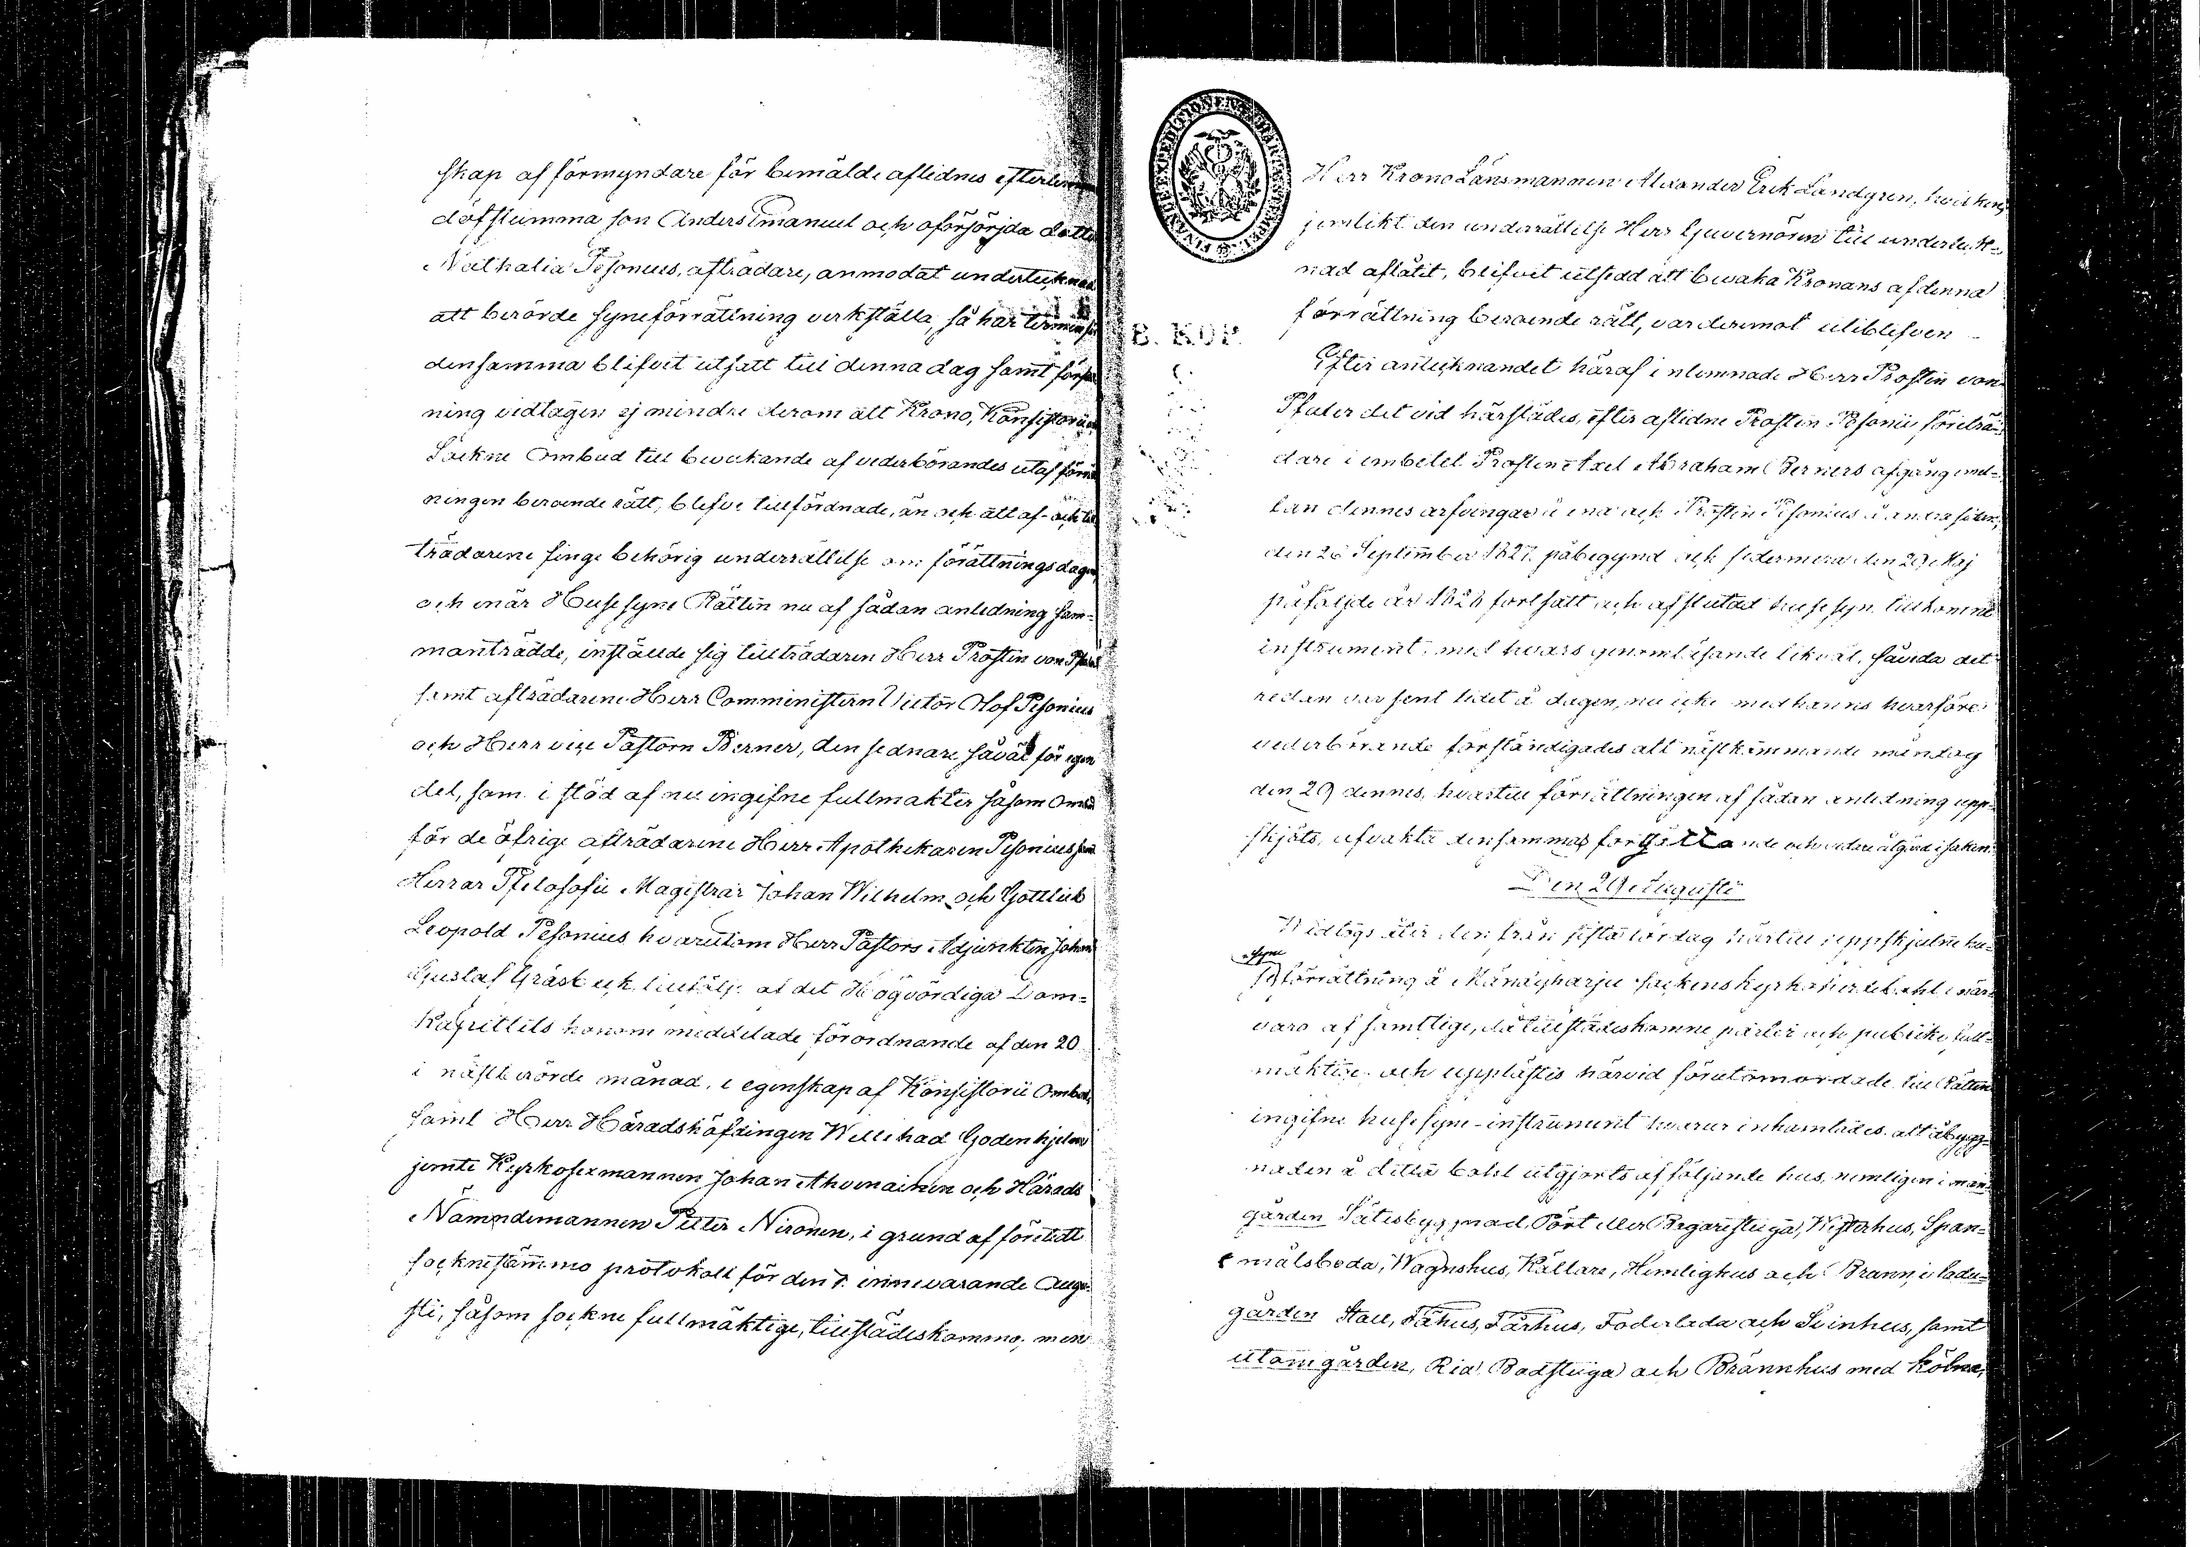 skap af förmyndare för bemälde aflidnes efterlemn
döfstumma son Anders Emanuel och oförsörjda dotte
Nathalia Pesonius, afträdare, anmodat underteckna
att berörde syneförrättning verkställa, så har termin för
densamma blifvit utsatt till denna dag samt förfa
ning vidtagen ej mindre derom att Krono, Konsistorii
Sockne Ombud till bevakande af vederbörandes utaf förrä
ningen beroende rätt, blefve tillförordnade, än och att af- och til
trädarene finge behörig underrättelse om förättningsdagen
och när Husesyne Rätten nu af sådan anledning sam-
manträdde, inställde sig tillträdaren Herr Prosten von Pfaler
samt afträdarene Herr Comministern Victor Olof Pesonius
och Herr vice Pastorn Berner, den sednare såväl för egen
del, som i stöd af nu ingifne fullmakter såsom Ombud
för de öfrige afträdarene Herr Apothekaren Pesonius samt
Herrar Filosofie Magistrar Johan Wilhelm och Gottlieb
Leopold Pesonius hvarutom Herr Pastors Adjunkten Johan
Gustaf Gråsten, till följe af det Högvördiga Dom-
Kapitlets honom meddelade förordnande af den 20
i nästberörde månad, i egenskap af Konsistorii Ombud,
samt Herr Häradshöfdingen Willehad Godenhjelm
jemte Kyrkosexmannen Johan Ahvenainen och Härads
Nämndemannen Petter Nironen, i grund af företedt
socknestämmo protokoll för den 7. innevarande Augu-
sti, såsom sockne fullmäktige, tillstädeskommo, men
FINANCE EXPEDITIONENS CHARTÆ STEMPEL
B. KOP.
Herr Krono Länsmannen Alexander Erik Landgren, hvilken,
jemlikt den underrättelse Herr Guvernören till underteck-
nad aflåtit, blifvit utsedd att bevaka Kronans af denna
förrättning beroende rätt, var deremot utiblefven
Efter antecknandet häraf inlemnade Herr Prosten von
Pfaler det vid härstädes, efter aflidne Prosten Pesonii företrä-
dare i embetet Prosten Axel Abraham Berners afgång mel-
lan dennes arfvingar å ena och Prosten Pesonius å andra sidan,
den 26 September 1827 påbegynd och sedermera den 29 Maj
påföljde år 1828 fortsatt och afslutad husesyn tillkomne
instrument, med hvars genomläsande likväl, såvida det
redan var sent lidet å dagen, nu icke medhanns hvarföre
vederbörande förständigades att nästkommande måndag
den 29 dennes, hvartill förrättningen af sådan anledning upp-
skjöts, afvakta densammas fortsättande och vidare åtgärd i saken.
Den 29 Augusti
Vidtogs åter den från sista lördag härtill uppskjutne hu-
syne
förrättning å Mäntyharju sockens kyrkoherdebohl i när-
varo af samtlige, då tillstädeskomne parter och publike full-
mäktige och upplästes härvid förutomordade till Rätten
ingifne husesyne-instrument hvarur inhemtades att åbygg-
naden å detta bohl utgjorts af följande hus, nemligen i man-
gården Sätesbyggnad, Pört eller Bagarestuga, Visthus, Span-
målsboda, Wagnshus, Källare, Hemlighus och Brunn, i ladu-
gården Stall, Fähus, Fårhus, Foderlada och Svinhus, samt
utomgården, Ria, Badstuga och Brännhus med Kölna,